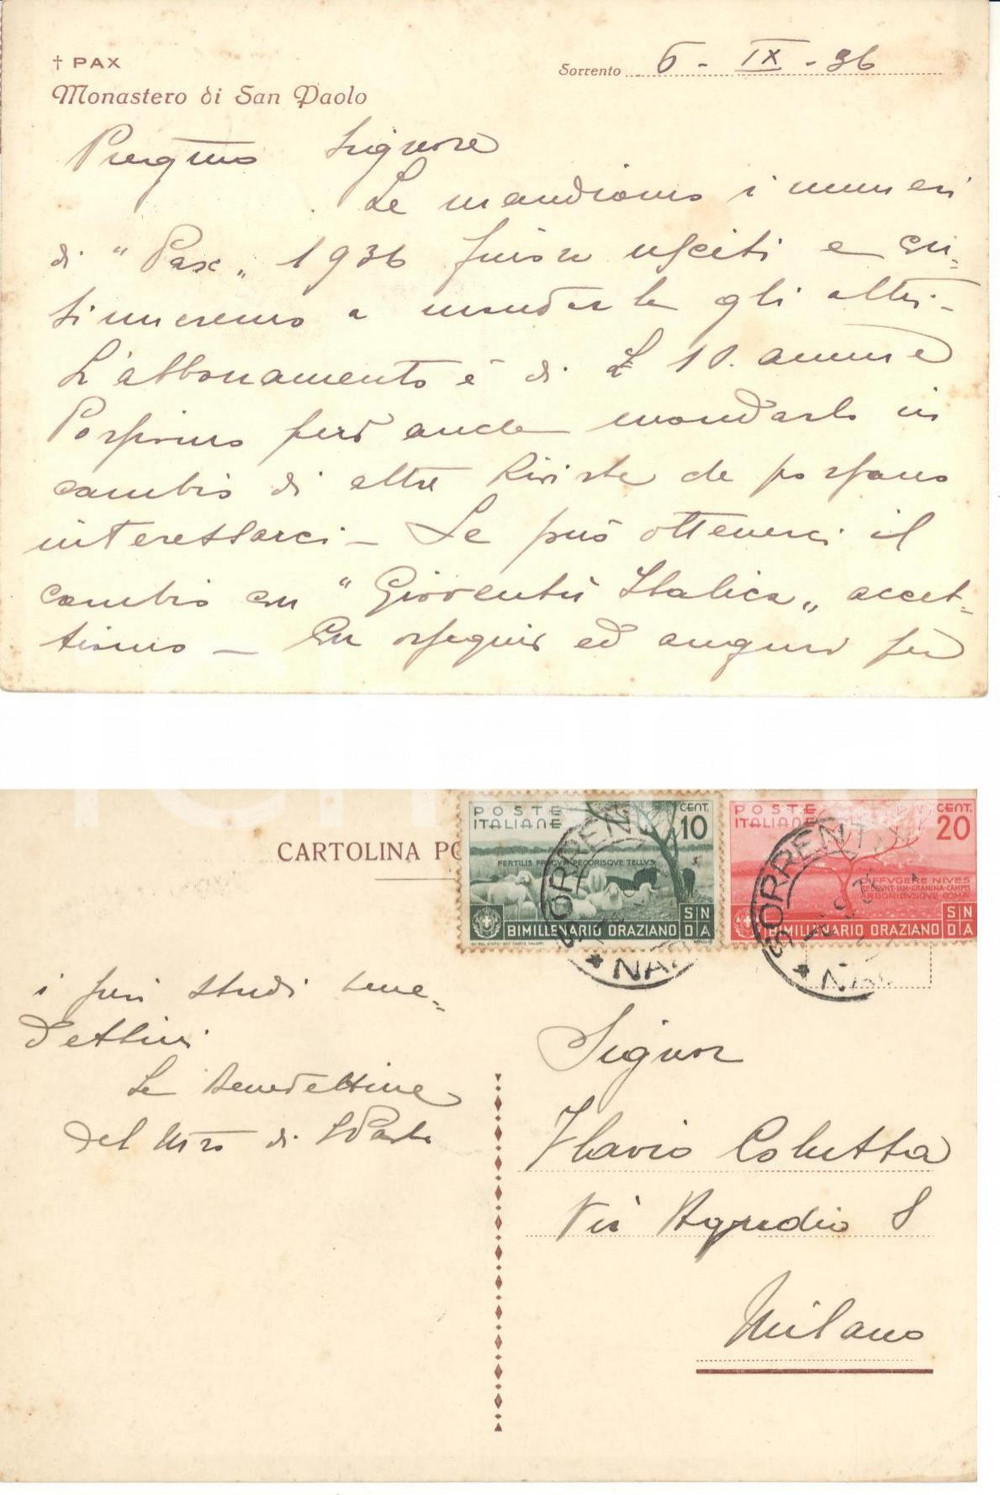 † PAX
Monastero di San Paolo
Sorrento 6 - IX - 36
Pregmo Signore
Le mandiamo i numeri
di "Pax" 1936 finora usciti e con=
tinueremo a mandarle gli altri -
L'abbonamento è di £ 10. annue
Possiamo però anche mandarlo in
cambio di altre Riviste che possano
interessarci - Se può ottenerci il
cambio con "Gioventù Italica" accet-
tiamo - Con ossequi ed auguri per
CARTOLINA PO
POSTE
ITALIANE
CENT.
10
FERTILIS FRUGUM PECORISQUE TELLUS
BIMILLENARIO ORAZIANO
SN
DA
POSTE
ITALIANE
CENT.
20
DIFFUGERE NIVES
REDEUNT IAM GRAMINA CAMPIS
ARBORIBUSQUE COMAE
BIMILLENARIO ORAZIANO
SN
DA
SORRENT
* NAP
SORRENT
* NA
i suoi studi bene=
dettini
Le Benedettine
del Mro di S. Paolo
Signor
Flavio Colutta
Via Agnedio 8
Milano